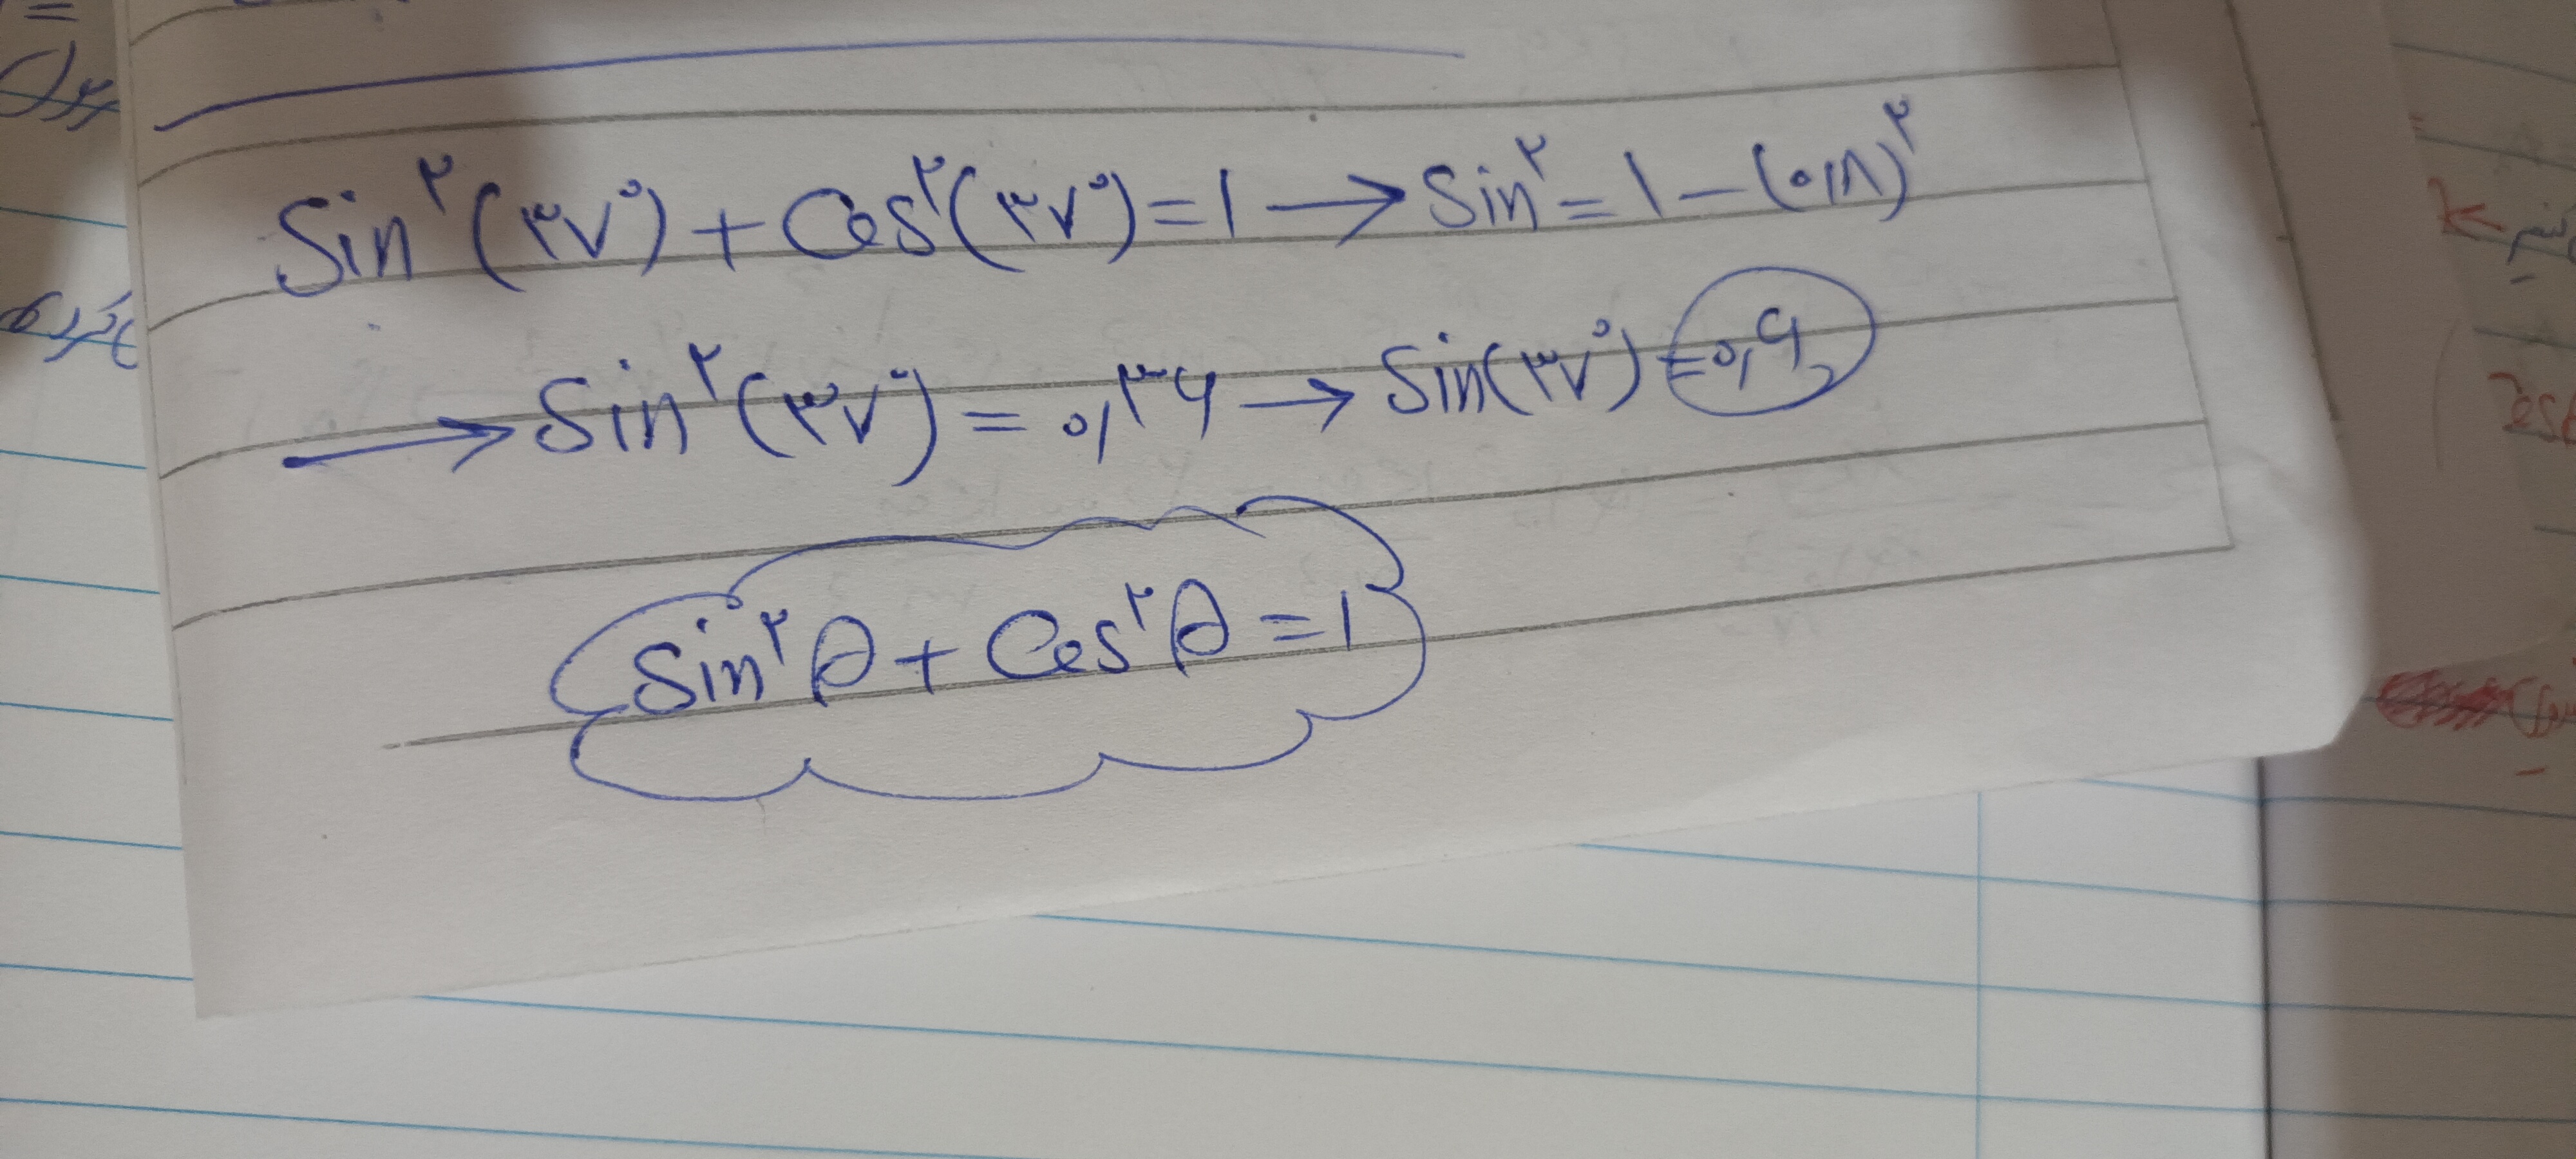 Sin²(۳۷°) + Cos²(۳۷°) = ۱ → Sin² = ۱ − (۰٫۸)²
→ Sin²(۳۷°) = ۰٫۳۶ → Sin(۳۷°) = ۰٫۶
Sin²θ + Cos²θ = ۱